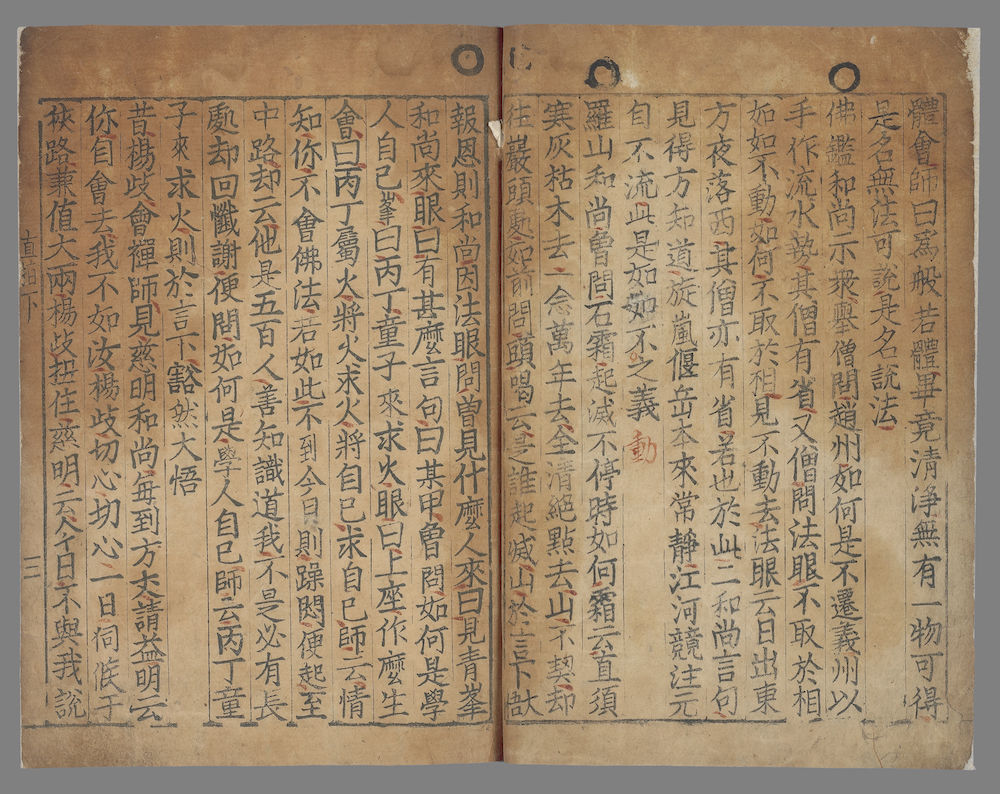 體會師曰爲般若體畢竟清淨無有一物可得
是名無法可說是名說法
佛鑑和尚示衆擧僧問趙州如何是不遷義州以
手作流水勢其僧有省又僧問法眼不取於相
如如不動如何不取於相見不動去法眼云日出東
方夜落西其僧亦有省若也於此二和尚言句
見得方知道旋嵐偃岳本來常靜江河競注元
自不流此是如如不之義
動
羅山和尚曾問石霜起滅不停時如何霜云直須
寒灰枯木去一念萬年去全淸絕點去山不契却
往巖頭處如前問頭喝云是誰起滅山於言下猷
報恩則和尚因法眼問曽見什麽人來曰見青峯
和尚來眼曰有甚麽言句曰某甲曽問如何是學
人自己峯曰丙丁童子來求火眼曰上座作麽生
會曰丙丁屬火將火求火將自己求自己師云情
知你不會佛法若如此不到今日則躁悶便起至
中路却云他是五百人善知識道我不是必有長
處却回懺謝便問如何是學人自己師云丙丁童
子來求火則於言下豁然大悟
昔楊歧會禪師見慈明和尚每到方丈請益明云
你自會去我不如汝楊歧切心切心一日伺候于
狹路兼值大雨楊歧扭住慈明云今日不與我說
直指下
三